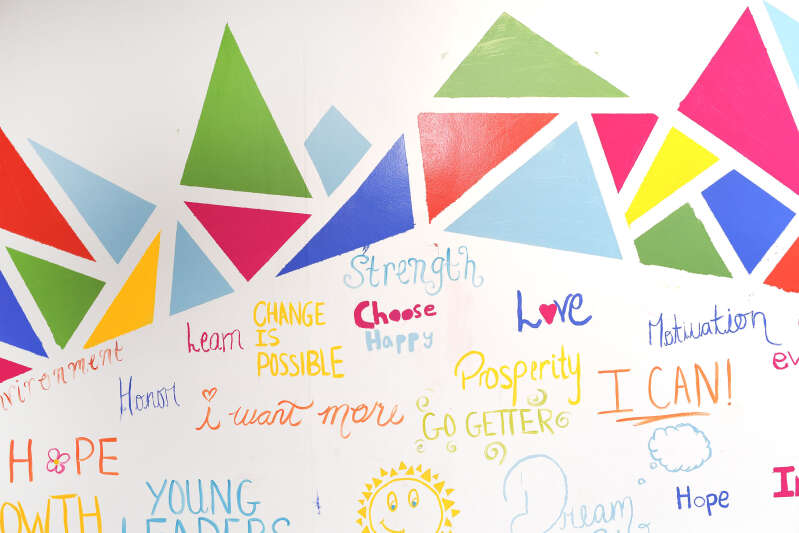 Strength
Love
Choose
Happy
CHANGE
IS
POSSIBLE
Learn
Motivation
Prosperity
I CAN!
Honor
i want more
GO GETTER
HOPE
YOUNG
LEADERS
Dream
Hope